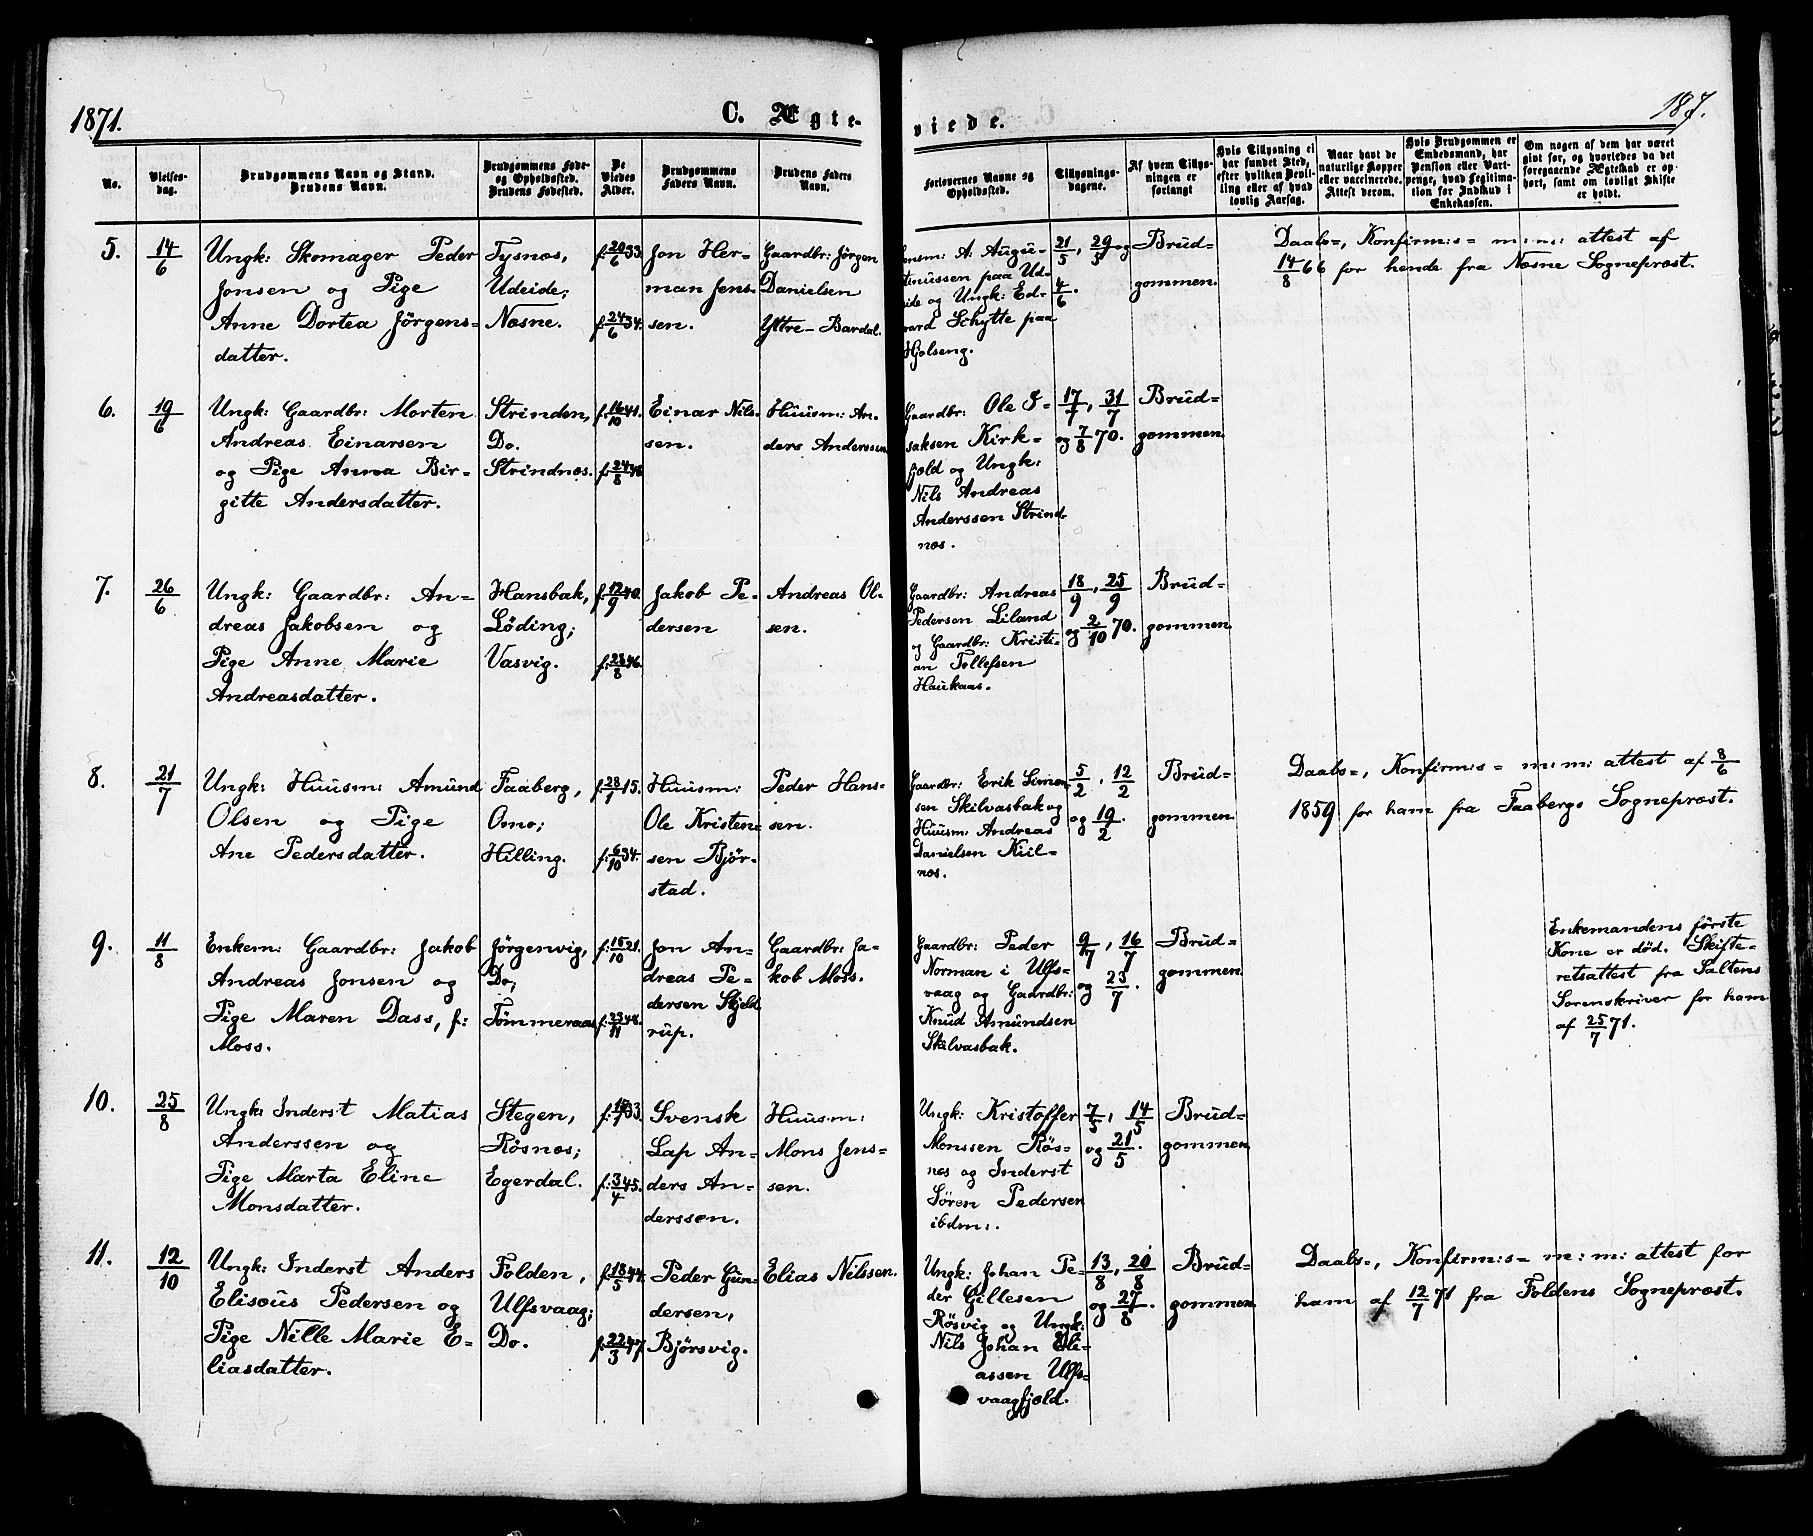 1871.
C. Ægte-
viede.
187.
No.
Vielses-
dag.
Brudgommens Navn og Stand.
Brudens Navn.
Brudgommens Føde-
og Opholdssted.
Brudens Fødested.
De
Viedes
Alder.
Brudgommens
Faders Navn.
Brudens Faders
Navn.
Forlovernes Navne og
Opholdssted.
Tillysnings-
dagene.
Af hvem Tillys-
ningen er
forlangt
Hvis Tillysning ei
har fundet Sted,
efter hvilken Bevil-
ling eller af hvad
lovlig Aarsag.
Naar havt de
naturlige Kopper
eller vaccinerede.
Attest derom.
Hvis Brudgommen er
Embedsmand, har
Pension eller Vart-
penge, hvad Legitima-
tion for Indskud i
Enkekassen.
Om nogen af dem har været
givt før, og hvorledes da det
foregaaende Ægteskab er op-
hørt, samt om lovligt Skifte
er holdt.
5.
14/6
Ungk: Skomager Peder
Jonsen og Pige
Anne Dortea Jörgens-
datter.
Tysnæs,
Udeide;
Næsne.
f: 20/6 33.
f: 24/6 34.
Jon Her-
man Jens-
sen.
Gaardbr: Jörgen
Danielsen
Yttre-Bardal.
Lensm: A. Augu-
stinussen paa Ud-
eide og Ungk: Ed-
vard Schytte paa
Hjelseng.
21/5, 29/5 og
4/6.
Brud-
gommen.
Daabs-, Konfirm:s- m:m: attest af
14/8 66 for hende fra Næsne Sogneprest.
6.
19/6
Ungk: Gaardbr: Morten
Andreas Einarsen
og Pige Anna Bir-
gitte Andersdatter.
Strinden,
Do.
Strindnæs.
f: 16/10 41.
f: 24/8 48.
Einar Nils-
sen.
Huusm: An-
ders Anderssen
Gaardbr: Ole I-
saksen Kirk-
fjeld og Ungk:
Nils Andreas
Anderssen Strind-
næs.
17/7, 31/7
og 7/8 70.
Brud-
gommen.
7.
26/6
Ungk: Gaardbr: An-
dreas Jakobsen og
Pige Anne Marie
Andreasdatter.
Hansbak,
Löding;
Vasvig.
f: 12/9 40.
f: 28/8 46.
Jakob Pe-
dersen
Andreas Ol-
sen.
Gaardbr: Andreas
Pedersen Liland
og Gaardbr: Kristi-
an Tollefsen
Haukaas.
18/9, 25/9
og 2/10 70.
Brud-
gommen.
8.
21/7
Ungk: Huusm: Amund
Olsen og Pige
Ane Pedersdatter.
Faaberg,
Omo;
Hilling.
f: 28/1 15.
f: 6/10 34.
Huusm:
Ole Kristen-
sen Björ-
stad.
Peder Hans-
sen.
Gaardbr: Erik Simon-
sen Skilvasbak og
Huusm: Andreas
Danielsen Kiil-
næs.
5/2, 12/2
og 19/2.
Brud-
gommen.
Daabs-, Konfirm:s- m:m: attest af 8/6
1859 for ham fra Faabergs Sogneprest.
9.
11/8
Enkem: Gaardbr: Jakob
Andreas Jonsen og
Pige Maren Dass, f:
Moss.
Jörgenvig,
Do;
Tömmeraas
f: 15/10 21.
f: 23/11 48.
Jon An-
dreas Pe-
dersen Skjeld-
rup.
Gaardbr: Ja-
kob Moss.
Gaardbr: Peder
Norman i Ulfs-
vaag og Gaardbr:
Knud Amundsen
Skilvasbak.
9/7, 16/7
og 23/7.
Brud-
gommen.
Enkemandens förste
Kone er död. Skifte-
retsattest fra Saltens
Sorenskriver for ham
af 25/7 71.
10.
25/8
Ungk: Inderst Matias
Anderssen og
Pige Marta Eline
Monsdatter.
Stegen,
Rösnæs;
Egerdal.
f: 17/1 33.
f: 3/4 45.
Svensk
Lap An-
ders An-
derssen.
Huusm:
Mons Jens-
sen.
Ungk: Kristoffer
Monssen Rös-
nes og Inderst
Sören Pedersen
ibdm:.
7/5, 14/5
og 21/5.
Brud-
gommen.
11.
12/10
Ungk: Inderst Anders
Elisæus Pedersen og
Pige Nille Marie E-
liasdatter.
Folden,
Ulfsvaag;
Do.
f: 18/5 44.
f: 22/3 47.
Peder Gun-
dersen,
Björsvig.
Elias Nilssen.
Ungk: Johan Pe-
der Gillesen
Rösvig og Ungk:
Nils Johan Eli-
assen Ulfs-
vaagfjæld.
13/8, 20/8
og 27/8.
Brud-
gommen.
Daabs-, Konfirm:s- m:m: attest for
ham af 12/7 71 fra Foldens Sogneprest.